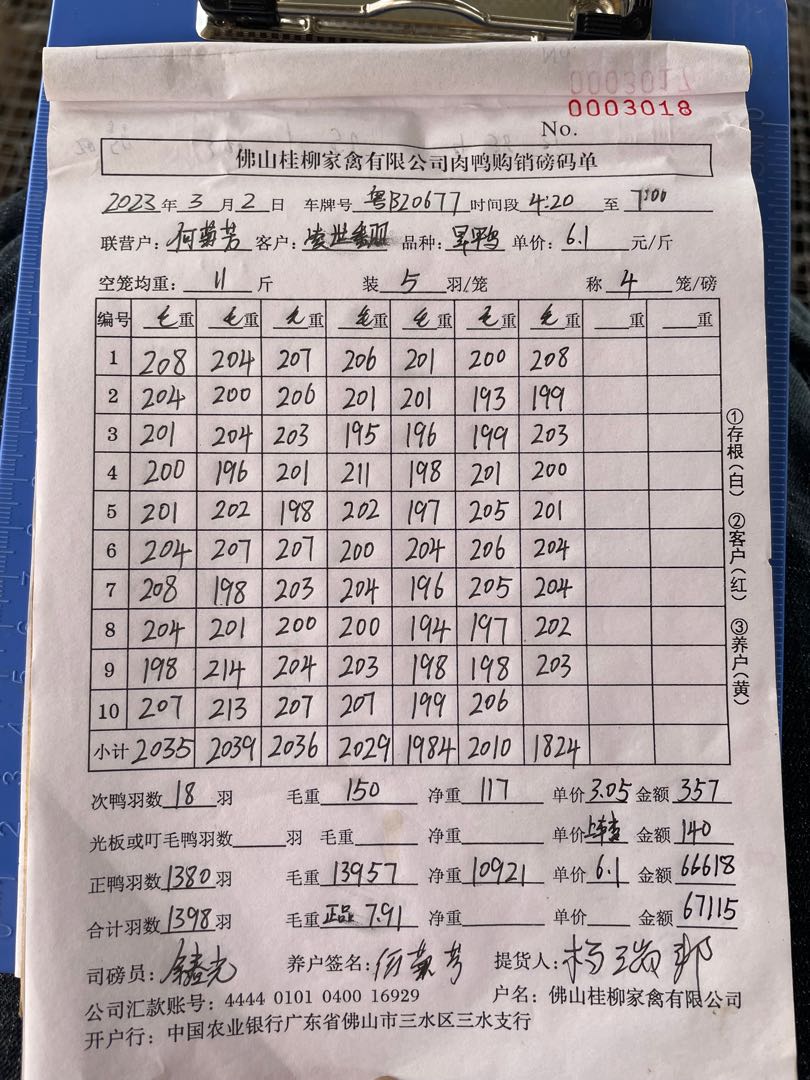 0003018
No.
佛山桂柳家禽有限公司肉鸭购销磅码单
2023年3月2日 车牌号 粤B20677 时间段 4:20 至 7:00
联营户: 何菊芳 客户: 品种: 旱鸭 单价: 6.1 元/斤
空笼均重: 11 斤 装 5 羽/笼 称 4 笼/磅
编号 毛重 毛重 毛重 毛重 毛重 毛重 毛重 重 重
1 208 204 207 206 201 200 208
2 204 200 206 201 201 193 199
3 201 204 203 195 196 199 203
4 200 196 201 211 198 201 200
5 201 202 198 202 197 205 201
6 204 207 207 200 204 206 204
7 208 198 203 204 196 205 204
8 204 201 200 200 194 197 202
9 198 214 204 203 198 198 203
10 207 213 207 207 199 206
小计 2035 2039 2036 2029 1984 2010 1824
①存根(白) ②客户(红) ③养户(黄)
次鸭羽数 18 羽 毛重 150 净重 117 单价 3.05 金额 357
光板或叮毛鸭羽数 羽 毛重 净重 单价 金额 140
正鸭羽数 1380 羽 毛重 13957 净重 10921 单价 6.1 金额 66618
合计羽数 1398 羽 毛重 正品 7.91 净重 单价 金额 67115
司磅员: 养户签名: 何菊芳 提货人:
公司汇款账号: 4444 0101 0400 16929 户名: 佛山桂柳家禽有限公司
开户行: 中国农业银行广东省佛山市三水区三水支行